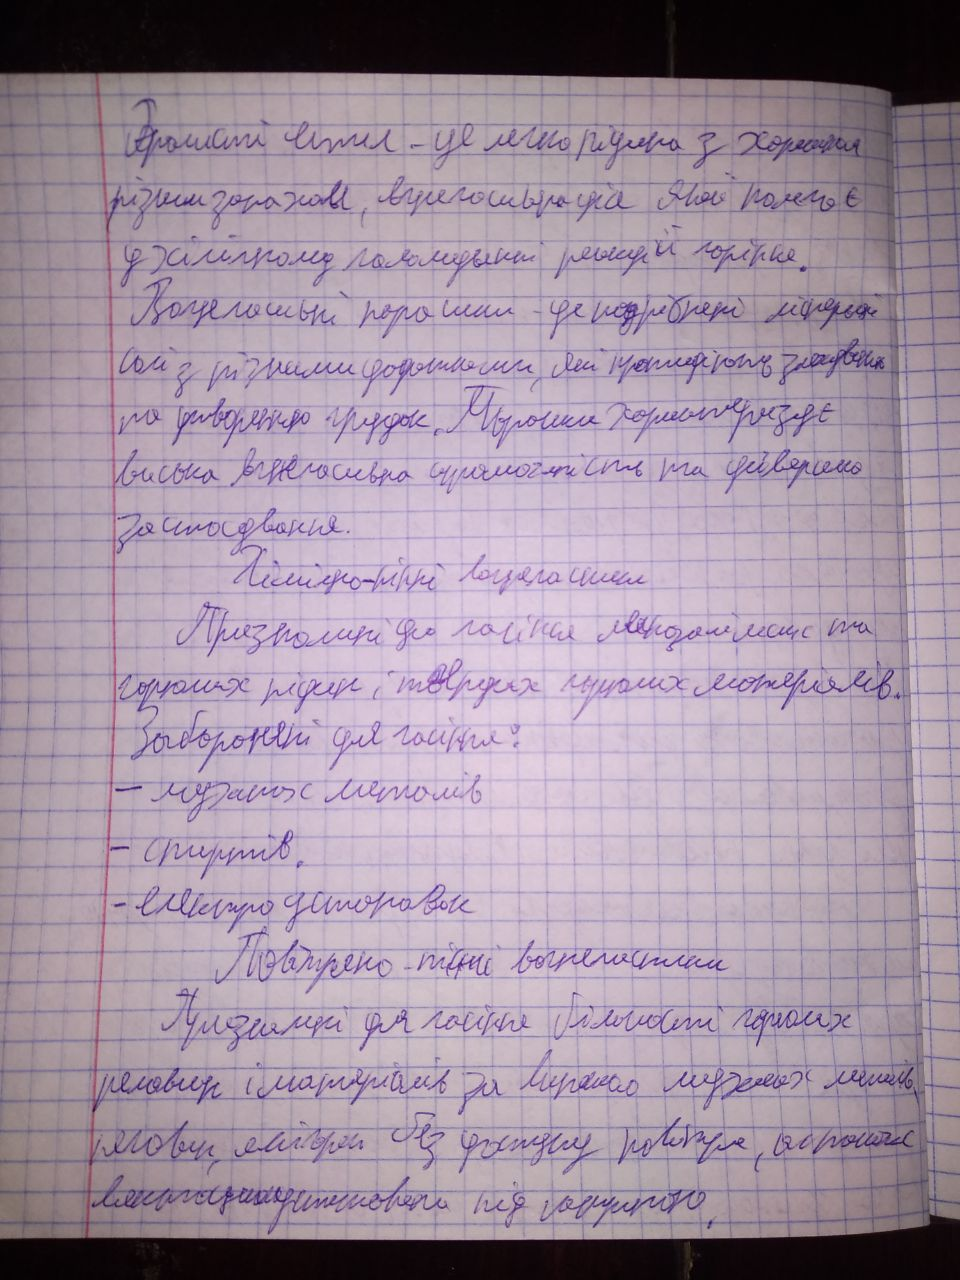 Бромистий етил – це легка рідина з характерним
різким запахом, вогнегасна дія якої полягає
у хімічному гальмуванні реакції горіння.
Вогнегасні порошки – це подрібнені мінеральні
солі з різними додатками, які протидіють злежуванню
та утворенню грудок. Порошки характеризує
висока вогнегасильна спроможність та універсальність
застосування.
Хімічно-пінні вогнегасники
Призначені для гасіння легкозаймистих та
горючих рідин і твердих горючих матеріалів.
Заборонені для гасіння:
– лужних металів
– спиртів.
– електроустановок
Повітряно-пінні вогнегасники
Призначені для гасіння більшості горючих
речовин і матеріалів за винятком лужних металів,
речовин, які горять без доступу повітря,
електроустановок під напругою.